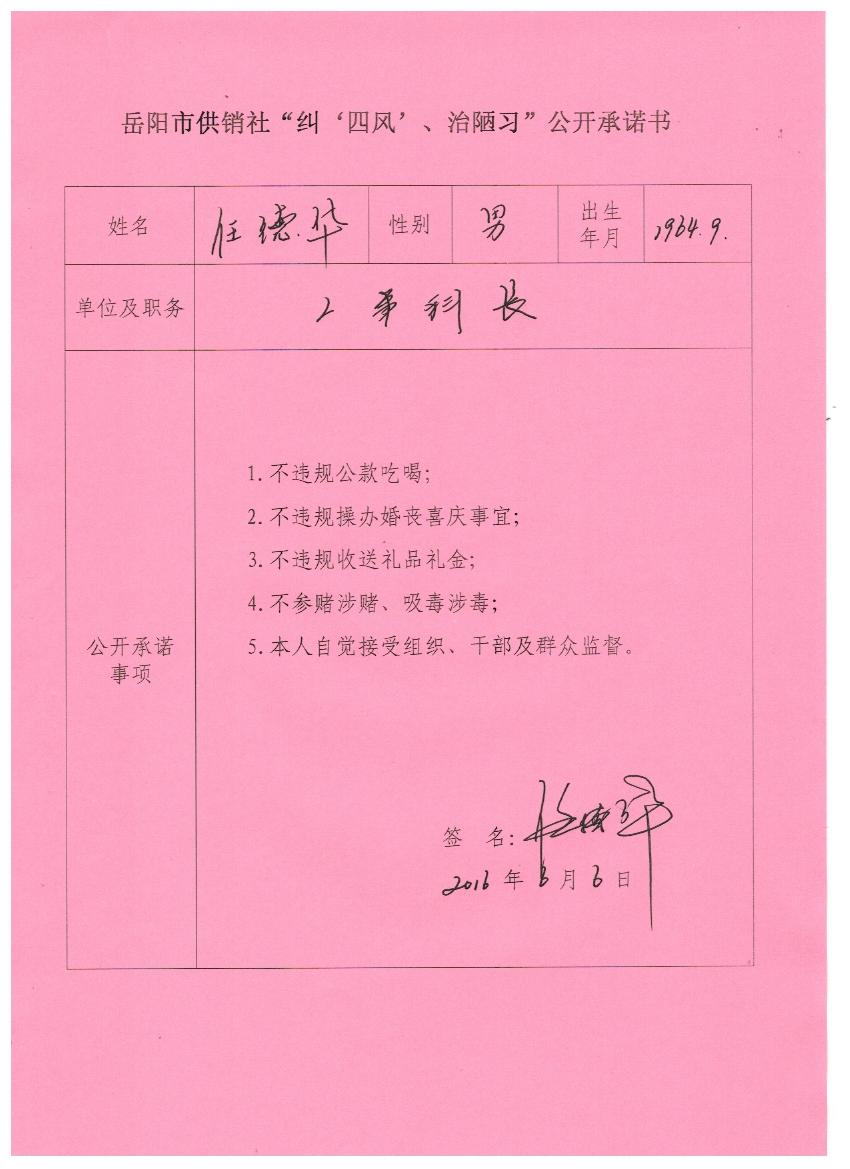 岳阳市供销社“纠‘四风’、治陋习”公开承诺书
姓名 任德华 性别 男 出生年月 1964.9.
单位及职务 人事科长
1.不违规公款吃喝;
2.不违规操办婚丧喜庆事宜;
3.不违规收送礼品礼金;
4.不参赌涉赌、吸毒涉毒;
5.本人自觉接受组织、干部及群众监督。
公开承诺
事项
签 名: 任德华
2016 年 6 月 6 日